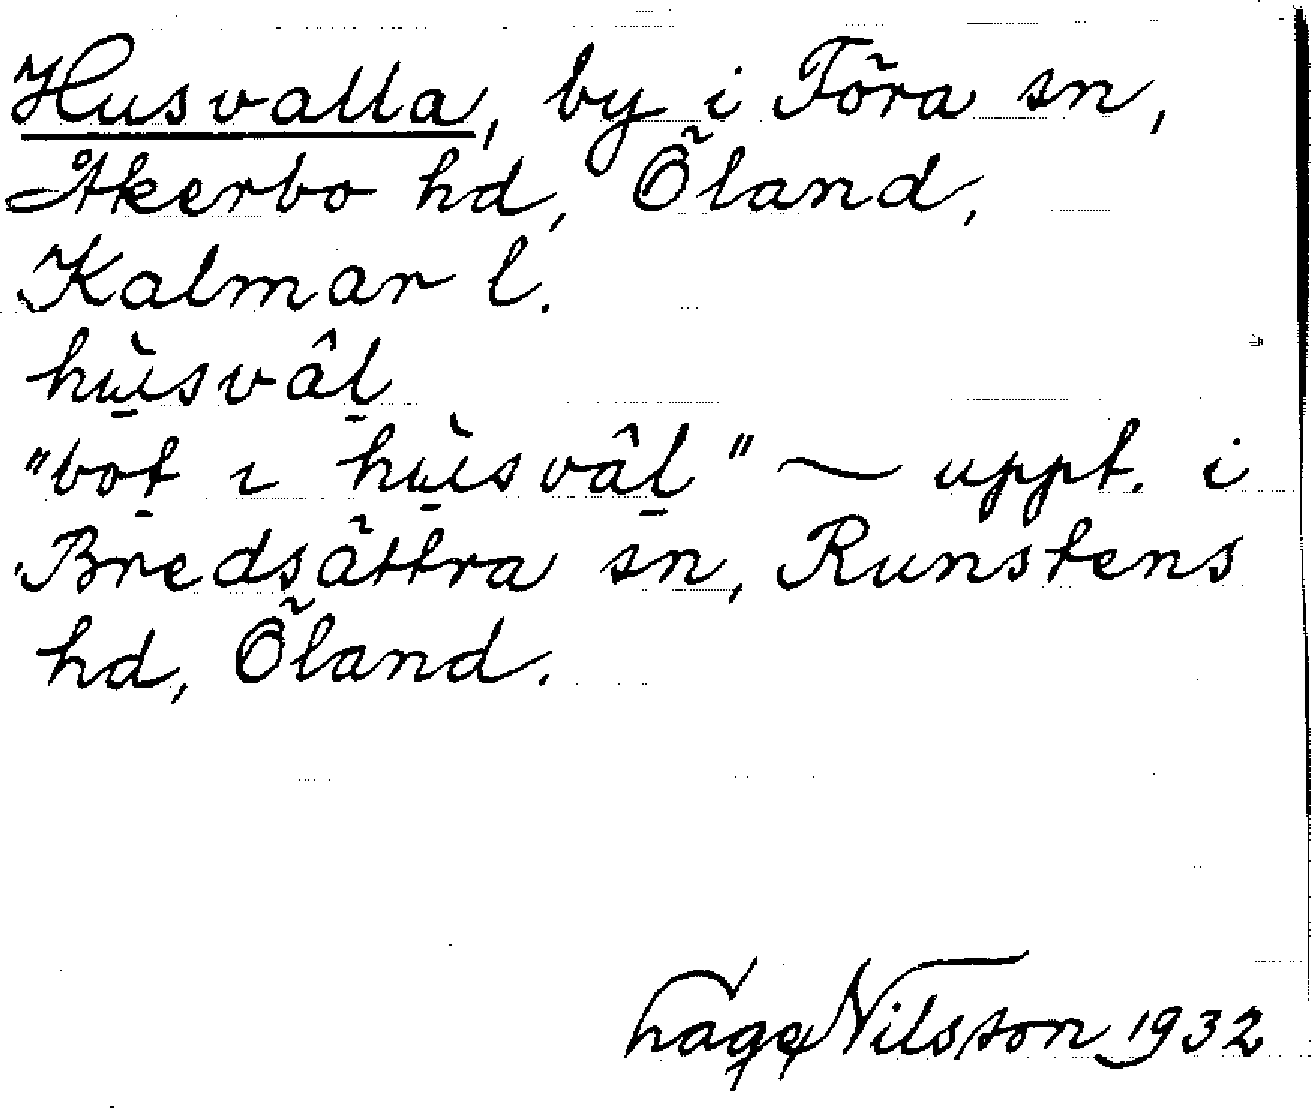 Husvalla, by i Föra sn,
Åkerbo hd, Öland,
Kalmar l.
hù̱svâḻ
"boṯ ɩ hù̱svâḻ" ~ uppt. i
Bredsättra sn, Runstens
hd, Öland.
Tage Nilsson 1932